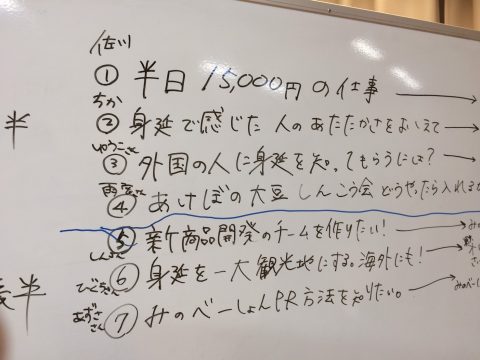 佐川
① 半日 15,000円 の仕事
ちか
② 身延で感じた 人のあたたかさをおしえて
半
ゆうこさん
③ 外国の人に身延を知ってもらうには?
④ あけぼの大豆 しんこう会 どうやったら入れるか
⑤ 新商品開発のチームを作りたい! みの
⑥ 身延を一大観光地にする。海外にも!
後半
あずささん
⑦ みのべーしょんPR方法を知りたい。 みのべーし